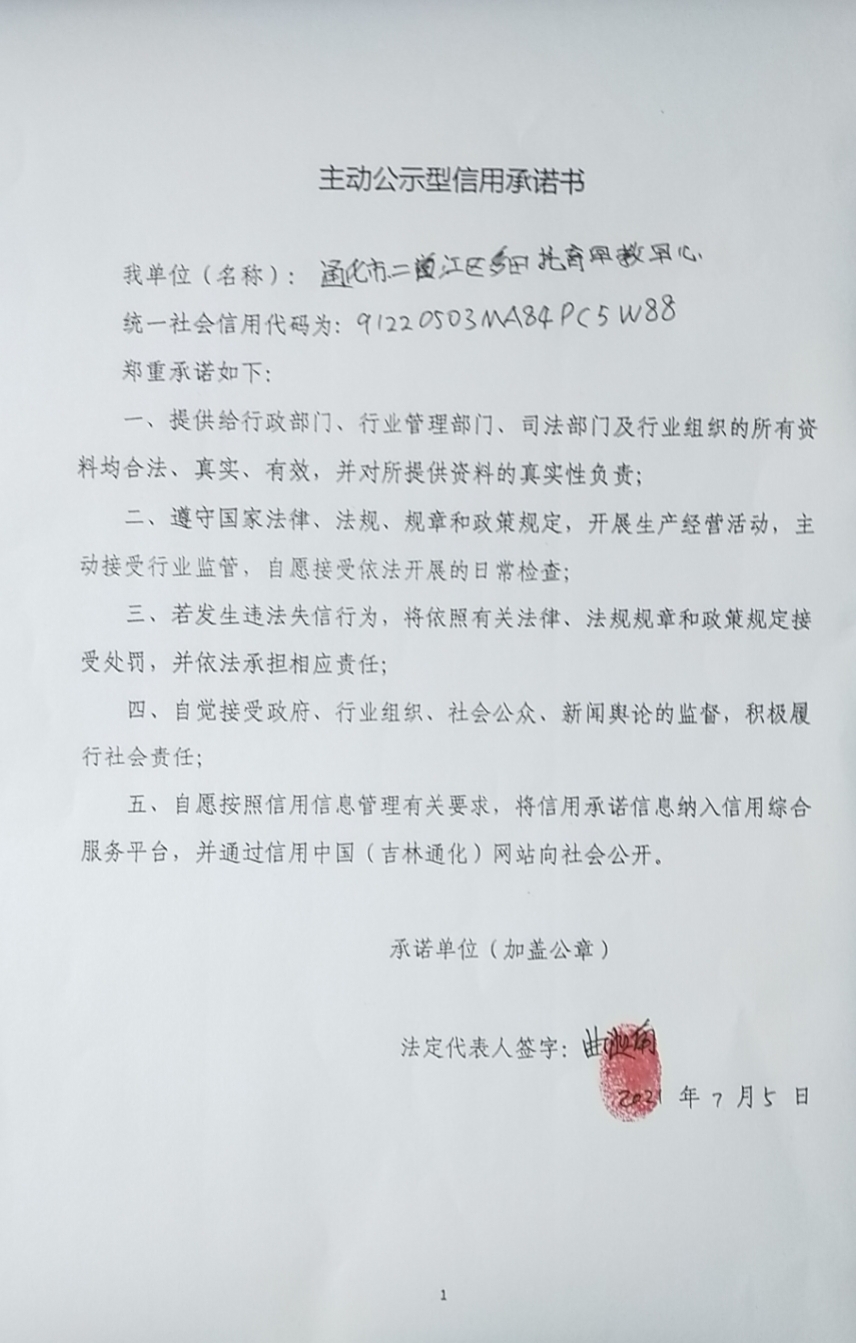 主动公示型信用承诺书
我单位（名称）：通化市二道江区多田托育早教中心
统一社会信用代码为：91220503MA84PC5W88
郑重承诺如下：
一、提供给行政部门、行业管理部门、司法部门及行业组织的所有资
料均合法、真实、有效，并对所提供资料的真实性负责；
二、遵守国家法律、法规、规章和政策规定，开展生产经营活动，主
动接受行业监管，自愿接受依法开展的日常检查；
三、若发生违法失信行为，将依照有关法律、法规规章和政策规定接
受处罚，并依法承担相应责任；
四、自觉接受政府、行业组织、社会公众、新闻舆论的监督，积极履
行社会责任；
五、自愿按照信用信息管理有关要求，将信用承诺信息纳入信用综合
服务平台，并通过信用中国（吉林通化）网站向社会公开。
承诺单位（加盖公章）
法定代表人签字：
2021年7月5日
1